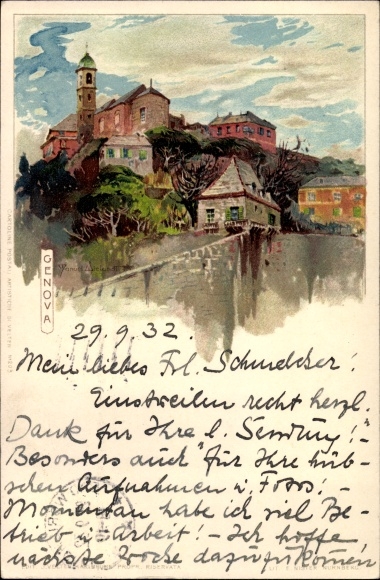 GENOVA
Manuel Wielandt
29.9.32.
Mein liebes Frl. Schmelcher!
Einstweilen recht herzl.
Dank für Ihre l. Sendung! -
Besonders auch für Ihre hüb-
schen Aufnahmen u. Fotos! -
Momentan habe ich viel Be-
trieb u. Arbeit! - Ich hoffe
nächste Woche dazuzukommen
CARTOLINE POSTALI ARTISTICHE DI VELTEN